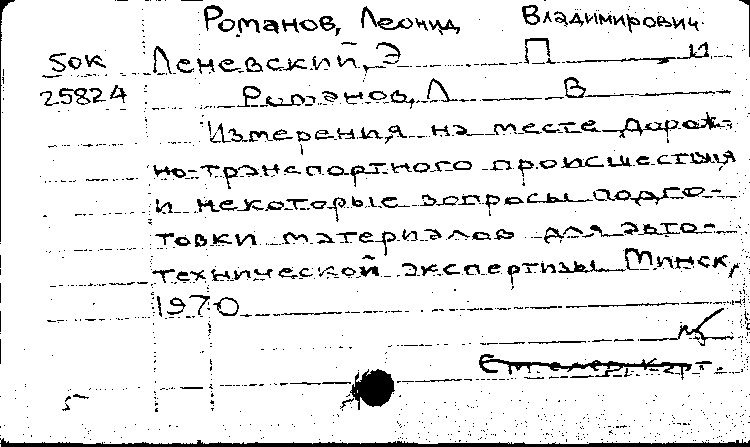 Романов, Леонид Владимирович
50К Леневский, Э П и
25824 Романов, Л В
Измерения на месте дорож-
но-транспортного происшествия
и некоторые вопросы подго-
товки материалов для авто-
технической экспертизы Минск,
1970
5